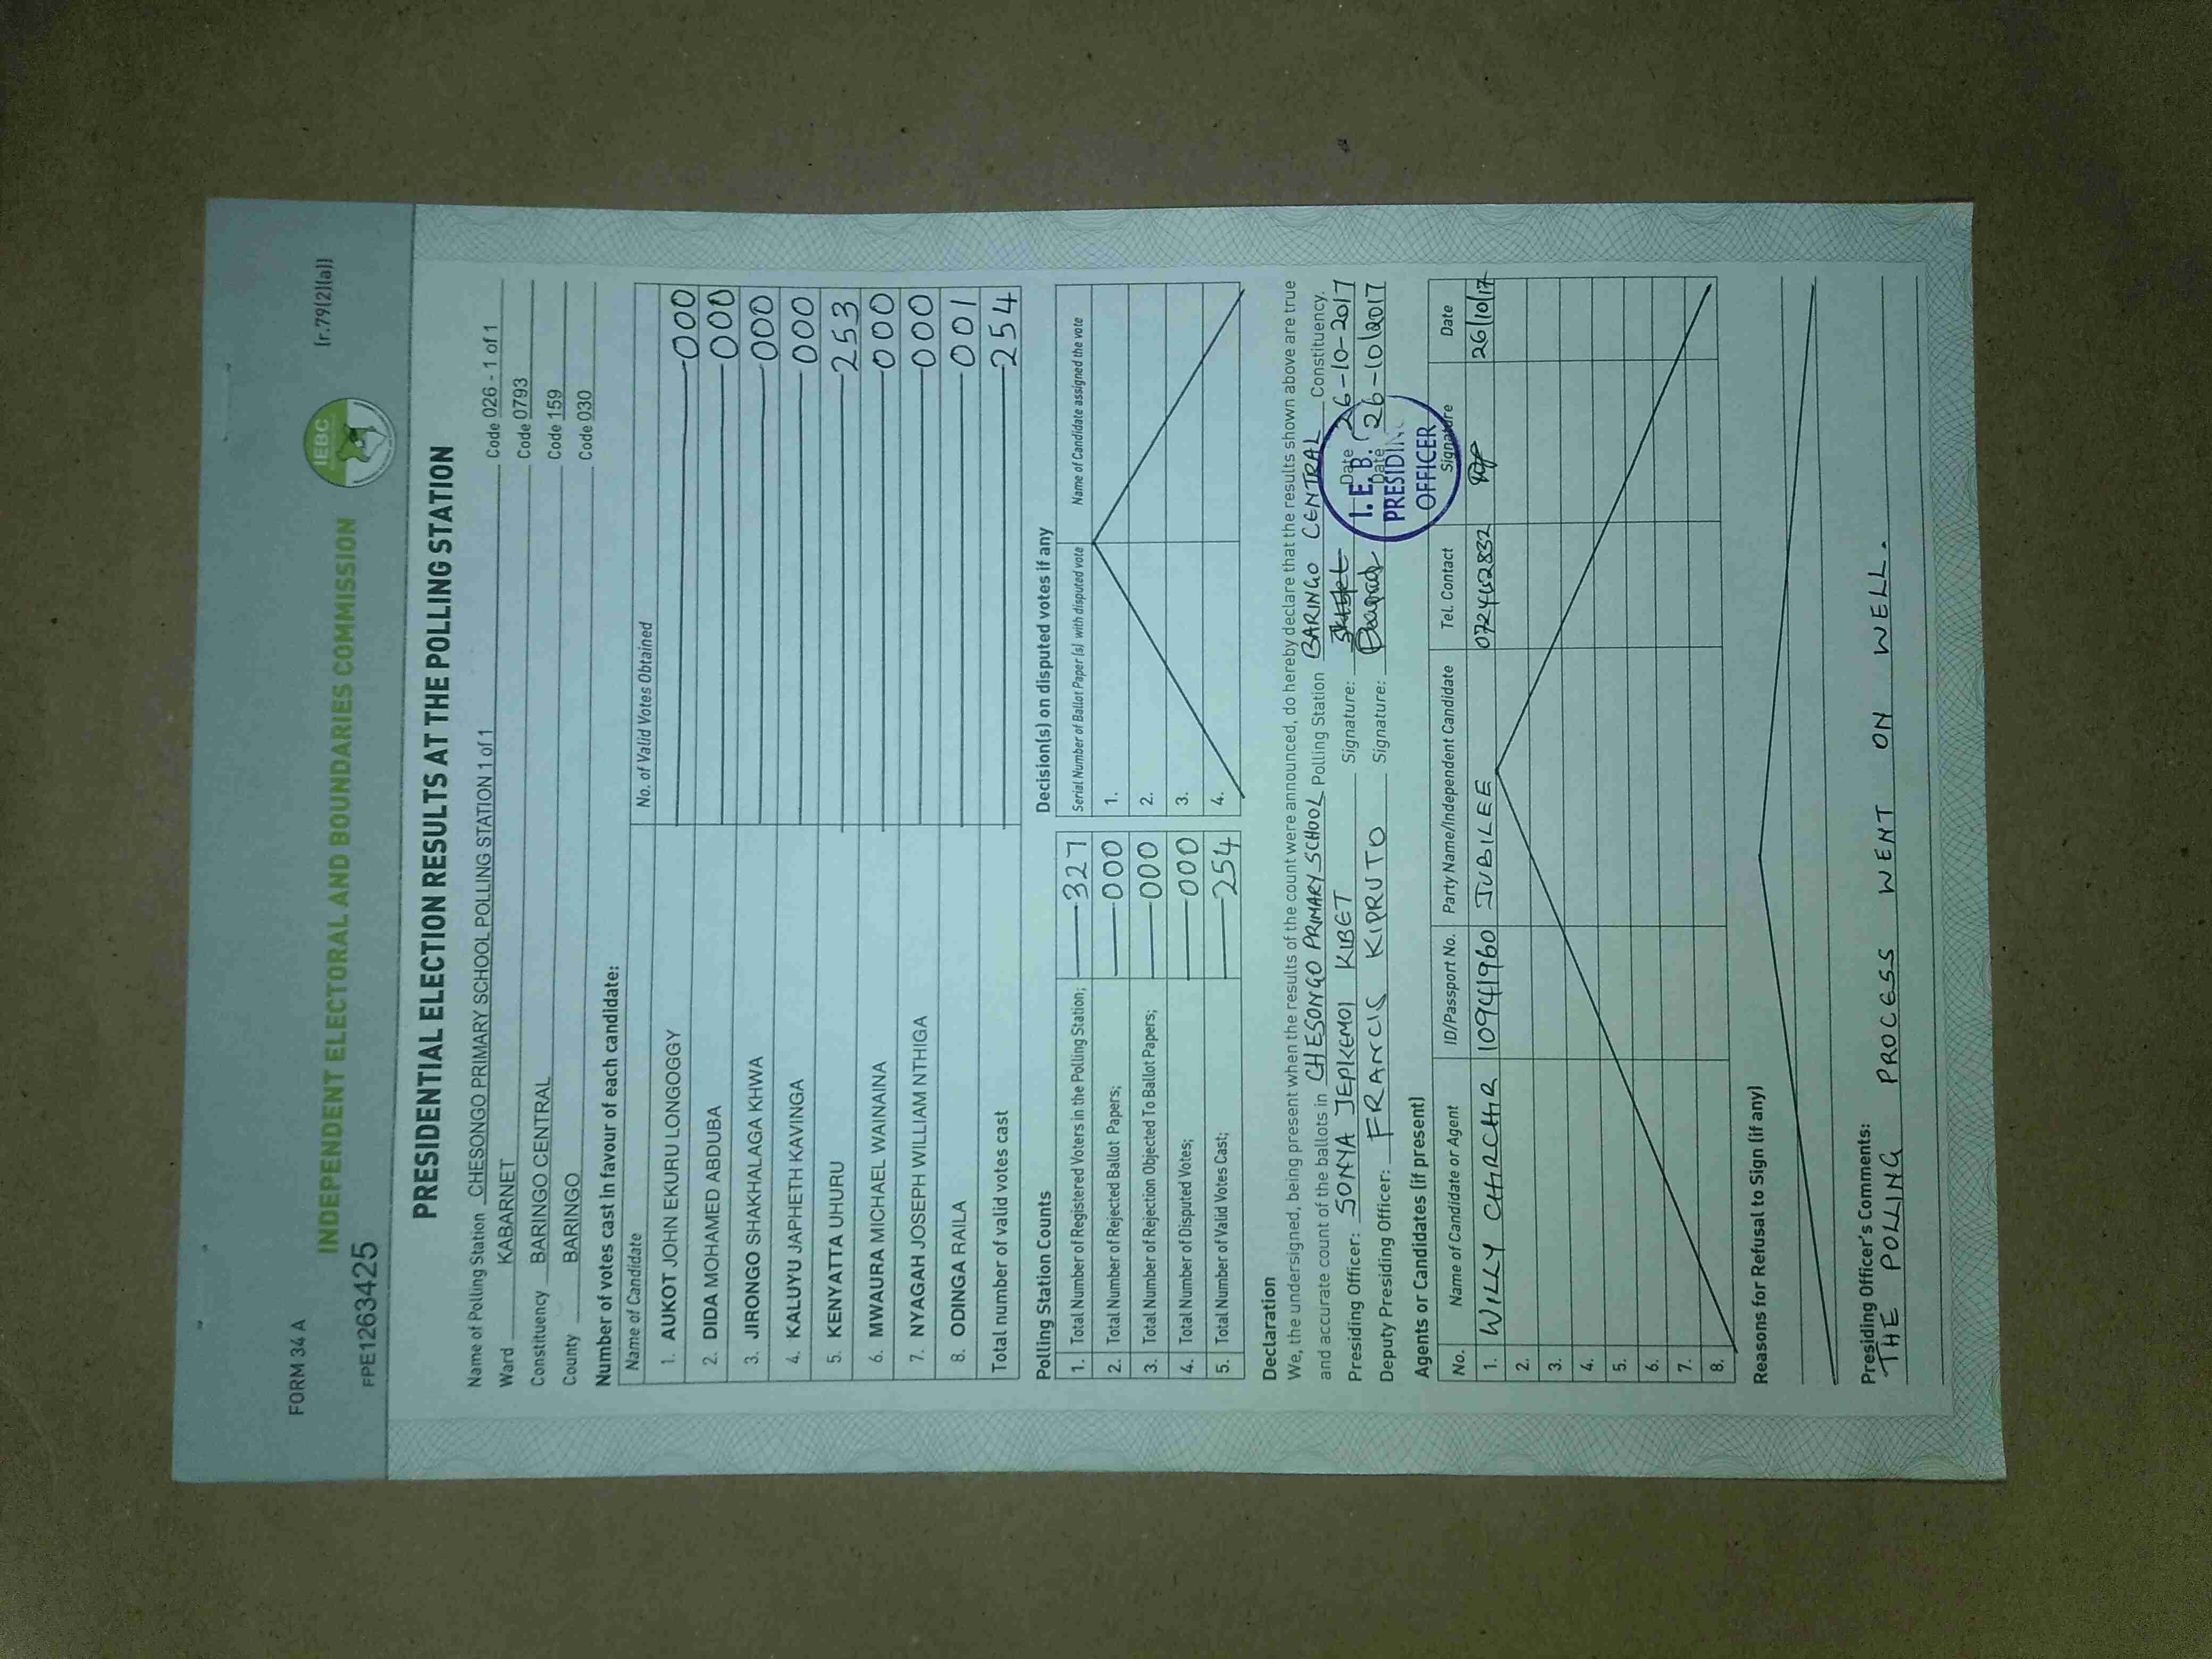 FORM 34 A
[r.79(2)(a)]
IEBC
INDEPENDENT ELECTORAL AND BOUNDARIES COMMISSION
FPE12634425
PRESIDENTIAL ELECTION RESULTS AT THE POLLING STATION
Name of Polling Station CHESONGO PRIMARY SCHOOL POLLING STATION 1 of 1 Code 026 - 1 of 1
Ward KABARNET Code 0793
Constituency BARINGO CENTRAL Code 159
County BARINGO Code 030
Number of votes cast in favour of each candidate:
Name of Candidate No. of Valid Votes Obtained
1. AUKOT JOHN EKURU LONGOGGY 000
2. DIDA MOHAMED ABDUBA 000
3. JIRONGO SHAKHALAGA KHWA 000
4. KALUYU JAPHETH KAVINGA 000
5. KENYATTA UHURU 253
6. MWAURA MICHAEL WAINAINA 000
7. NYAGAH JOSEPH WILLIAM NTHIGA 000
8. ODINGA RAILA 001
Total number of valid votes cast 254
Polling Station Counts
1. Total Number of Registered Voters in the Polling Station; 327
2. Total Number of Rejected Ballot Papers; 000
3. Total Number of Rejection Objected To Ballot Papers; 000
4. Total Number of Disputed Votes; 000
5. Total Number of Valid Votes Cast; 254
Decision(s) on disputed votes if any
Serial Number of Ballot Paper (s) with disputed vote Name of Candidate assigned the vote
1.
2.
3.
4.
Declaration
We, the undersigned, being present when the results of the count were announced, do hereby declare that the results shown above are true
and accurate count of the ballots in CHESONGO PRIMARY SCHOOL Polling Station BARINGO CENTRAL Constituency.
Presiding Officer: SONYA JEPKEMOI KIBET Signature: Date 26-10-2017
Deputy Presiding Officer: FRANCIS KIPRUTO Signature: Date 26-10/2017
I. E. B.
PRESIDING
OFFICER
Agents or Candidates (if present)
No. Name of Candidate or Agent ID/Passport No. Party Name/Independent Candidate Tel. Contact Signature Date
1. WILLY CHIRCHIR 109441960 JUBILEE 0724462832 26/10/17
2.
3.
4.
5.
6.
7.
8.
Reasons for Refusal to Sign (if any)
Presiding Officer's Comments:
THE POLLING PROCESS WENT ON WELL.